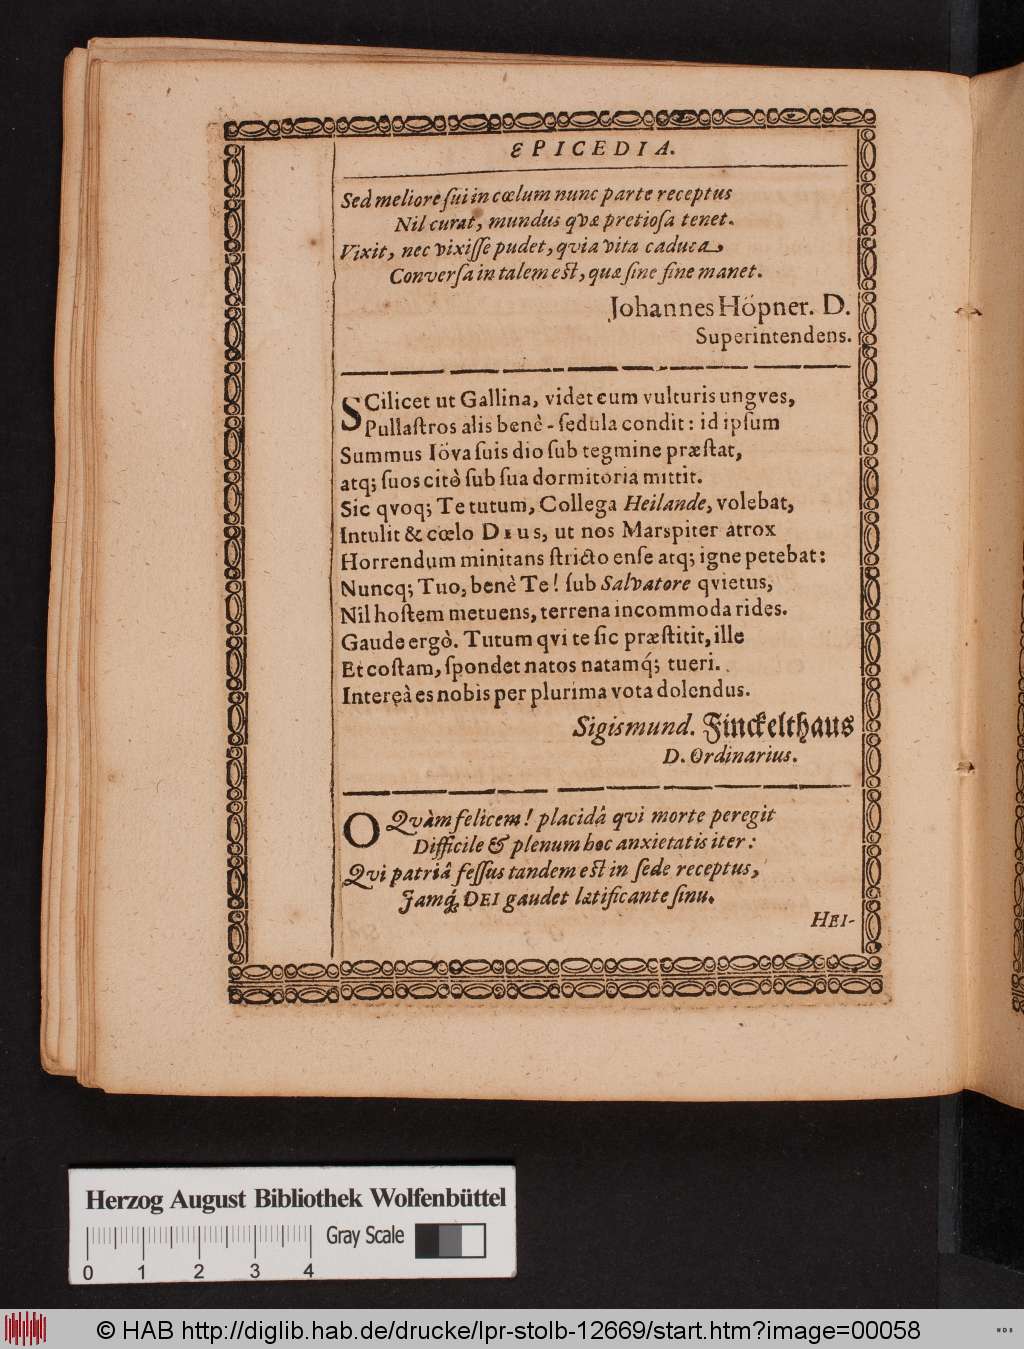 EPICEDIA.
Sed meliore ſui in cœlum nunc parte receptus
Nil curat, mundus qvæ pretioſa tenet.
Vixit, nec vixiſſe pudet, qvia vita caduca,
Converſa in talem eſt, quæ ſine fine manet.
Johannes Höpner. D.
Superintendens.
SCilicet ut Gallina, videt cum vulturis ungves,
Pullaſtros alis benè - ſedula condit: id ipſum
Summus Iöva ſuis dio ſub tegmine præſtat,
atq; ſuos citò ſub ſua dormitoria mittit.
Sic qvoq; Te tutum, Collega Heilande, volebat,
Intulit & cœlo DEUS, ut nos Marspiter atrox
Horrendum minitans ſtricto enſe atq; igne petebat:
Nuncq; Tuo, benè Te! ſub Salvatore qvietus,
Nil hoſtem metuens, terrena incommoda rides.
Gaude ergò. Tutum qvi te ſic præſtitit, ille
Et coſtam, ſpondet natos natamq́; tueri.
Intereà es nobis per plurima vota dolendus.
Sigismund. Finckelthaus
D. Ordinarius.
O Qvàm felicem! placidâ qvi morte peregit
Difficile & plenum hoc anxietatis iter:
Qvi patriâ feſſus tandem eſt in ſede receptus,
Jamq́; DEI gaudet lætificante ſinu.
HEI-
Herzog August Bibliothek Wolfenbüttel
Gray Scale
0 1 2 3 4
© HAB http://diglib.hab.de/drucke/lpr-stolb-12669/start.htm?image=00058